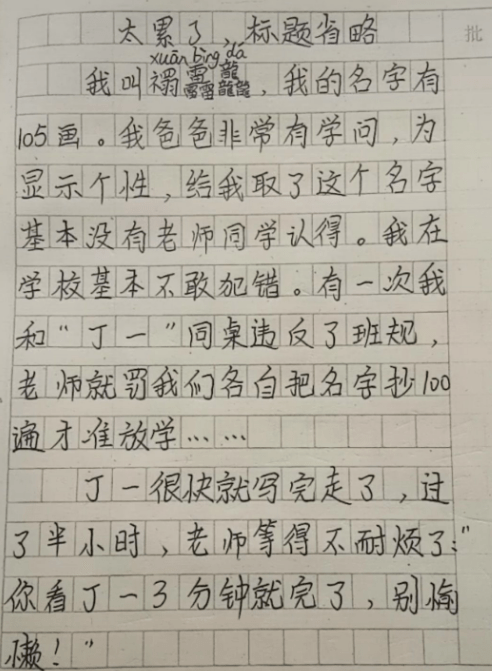 批
太累了，标题省略
xuān bìng dá
我叫禤靐龘，我的名字有
105画。我爸爸非常有学问，为
显示个性，给我取了这个名字
基本没有老师同学认得。我在
学校基本不敢犯错。有一次我
和“丁一”同桌违反了班规，
老师就罚我们各自把名字抄100
遍才准放学……
丁一很快就写完走了，过
了半小时，老师等得不耐烦了：“
你看丁一3分钟就完了，别偷
懒！”